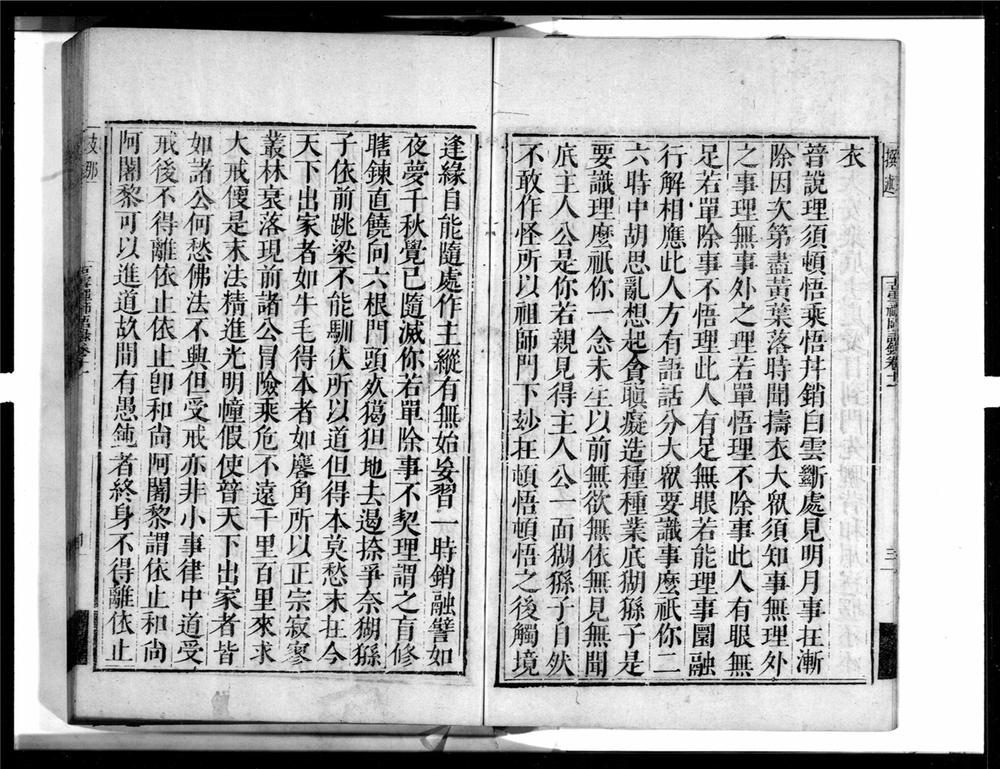 衣
普說理須頓悟乘悟并銷白雲斷處見明月事在漸
除因次第盡黃葉落時聞擣衣大眾須知事無理外
之事理無事外之理若單悟理不除事此人有眼無
足若單除事不悟理此人有足無眼若能理事圓融
行解相應此人方有語話分大眾要識事麼祇你二
六時中胡思亂想起貪瞋癡造種種業底猢猻子是
要識理麼祇你一念未生以前無欲無依無見無聞
底主人公是你若親見得主人公一面猢猻子自然
不敢作怪所以祖師門下玅在頓悟頓悟之後觸境
逢緣自能隨處作主縱有無始妄習一時銷融譬如
夜夢千秋覺已隨滅你若單除事不契理謂之盲修
瞎鍊直饒向六根門頭如獦狚地去遏捺爭奈猢猻
子依前跳梁不能馴伏所以道但得本莫愁末在今
天下出家者如牛毛得本者如麐角所以正宗寂寥
叢林衰落現前諸公冒險乘危不遠千里百里來求
大戒便是末法精進光明幢假使普天下出家者皆
如諸公何愁佛法不興但受戒亦非小事律中道受
戒後不得離依止依止卽和尚阿闍黎謂依止和尚
阿闍黎可以進道故間有愚鈍者終身不得離依止
撰述
三